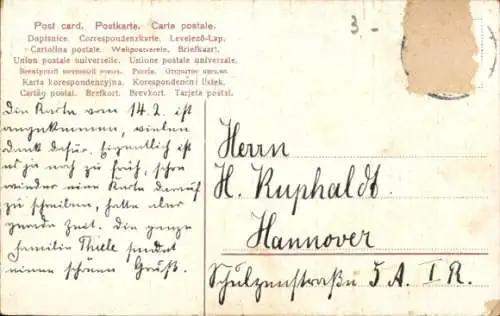 Post card. Postkarte. Carte postale.
Dopisnice. Correspondenzkarte. Levelező-Lap.
Cartolina postale. Weltpostverein. Briefkaart.
Union postale universelle. Unione postale universale.
Karta korespondencyjna. Korespondenční lístek.
Cartão postal. Brefkort. Brevkort. Tarjeta postal.
3.-
Die Karte vom 14.2. ist
angekommen, vielen
Dank dafür. Eigentlich ist
es ja noch zu früh, schon
wieder eine Karte darauf
zu schreiben, hatte aber
gerade Zeit. Die ganze
Familie Thiele sendet
einen schönen Gruß.
Herrn
H. Ruphaldt.
Hannover
Schulzenstraße 5 A. I. R.